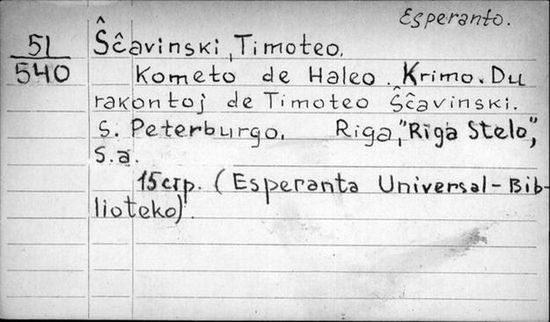 Esperanto.
51
540
Ŝĉavinski, Timoteo.
Kometo de Haleo. Krimo. Du
rakontoj de Timoteo Ŝĉavinski.
S. Peterburgo. Riga, "Riga Stelo",
S.a.
15 стр. (Esperanta Universal-Bib-
lioteko).